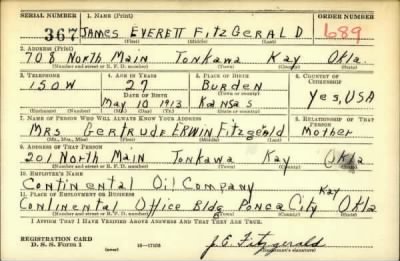 SERIAL NUMBER 1. NAME (Print) ORDER NUMBER
367 JAMES EVERETT FITZGERALD 689
(First) (Middle) (Last)
2. ADDRESS (Print)
708 North Main Tonkawa Kay Okla.
(Number and street or R. F. D. number) (Town) (County) (State)
3. TELEPHONE 4. AGE IN YEARS 5. PLACE OF BIRTH 6. COUNTRY OF CITIZENSHIP
150W 27 Burden
DATE OF BIRTH (Town or county)
May 10 1913 Kansas Yes, USA
(Mo.) (Day) (Yr.) (State or country)
7. NAME OF PERSON WHO WILL ALWAYS KNOW YOUR ADDRESS 8. RELATIONSHIP OF THAT PERSON
Mrs Gertrude Erwin Fitzgerald Mother
(Mr., Mrs., Miss) (First) (Middle) (Last)
9. ADDRESS OF THAT PERSON
201 North Main Tonkawa Kay Okla
(Number and street or R. F. D. number) (Town) (County) (State)
10. EMPLOYER'S NAME
Continental Oil Company
11. PLACE OF EMPLOYMENT OR BUSINESS Kay
Continental Office Bldg Ponca City Okla
(Number and street or R. F. D. number) (Town) (County) (State)
I AFFIRM THAT I HAVE VERIFIED ABOVE ANSWERS AND THAT THEY ARE TRUE.
REGISTRATION CARD
D. S. S. FORM 1 (over) 16—17105 J. E. Fitzgerald
(Registrant's signature)